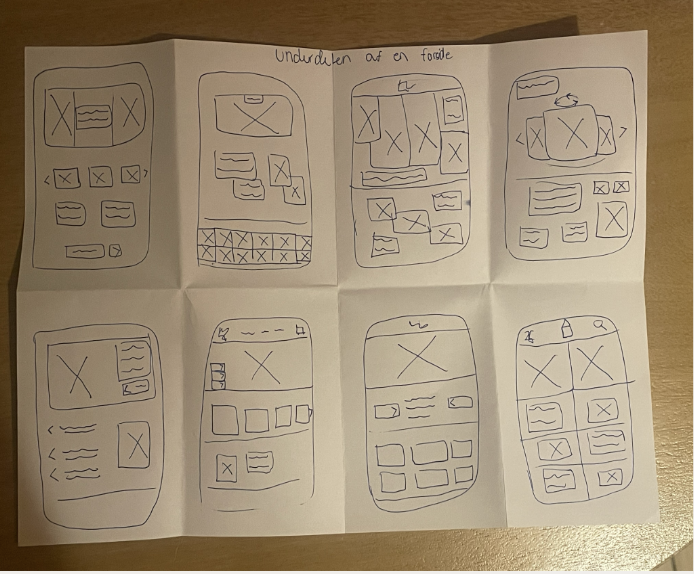 Underdelen af en forside